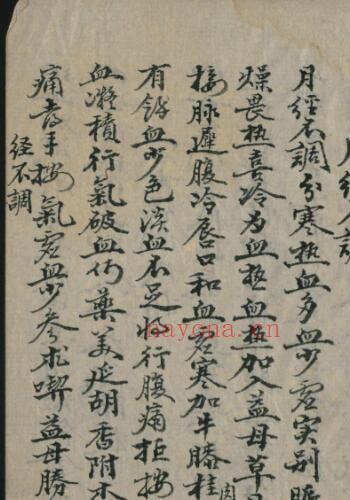 月經不調分寒热血多血少虚实别
燥畏热喜冷为血热血热加入益母草
按脉遲腹冷唇口和血虚寒加牛膝桂
有餘血少色淡血不足將行腹痛拒按
血凝積行氣破血仍藥美延胡香附木
痛者手按氣虚血少参术喫益母勝
经不調
nayona.cn